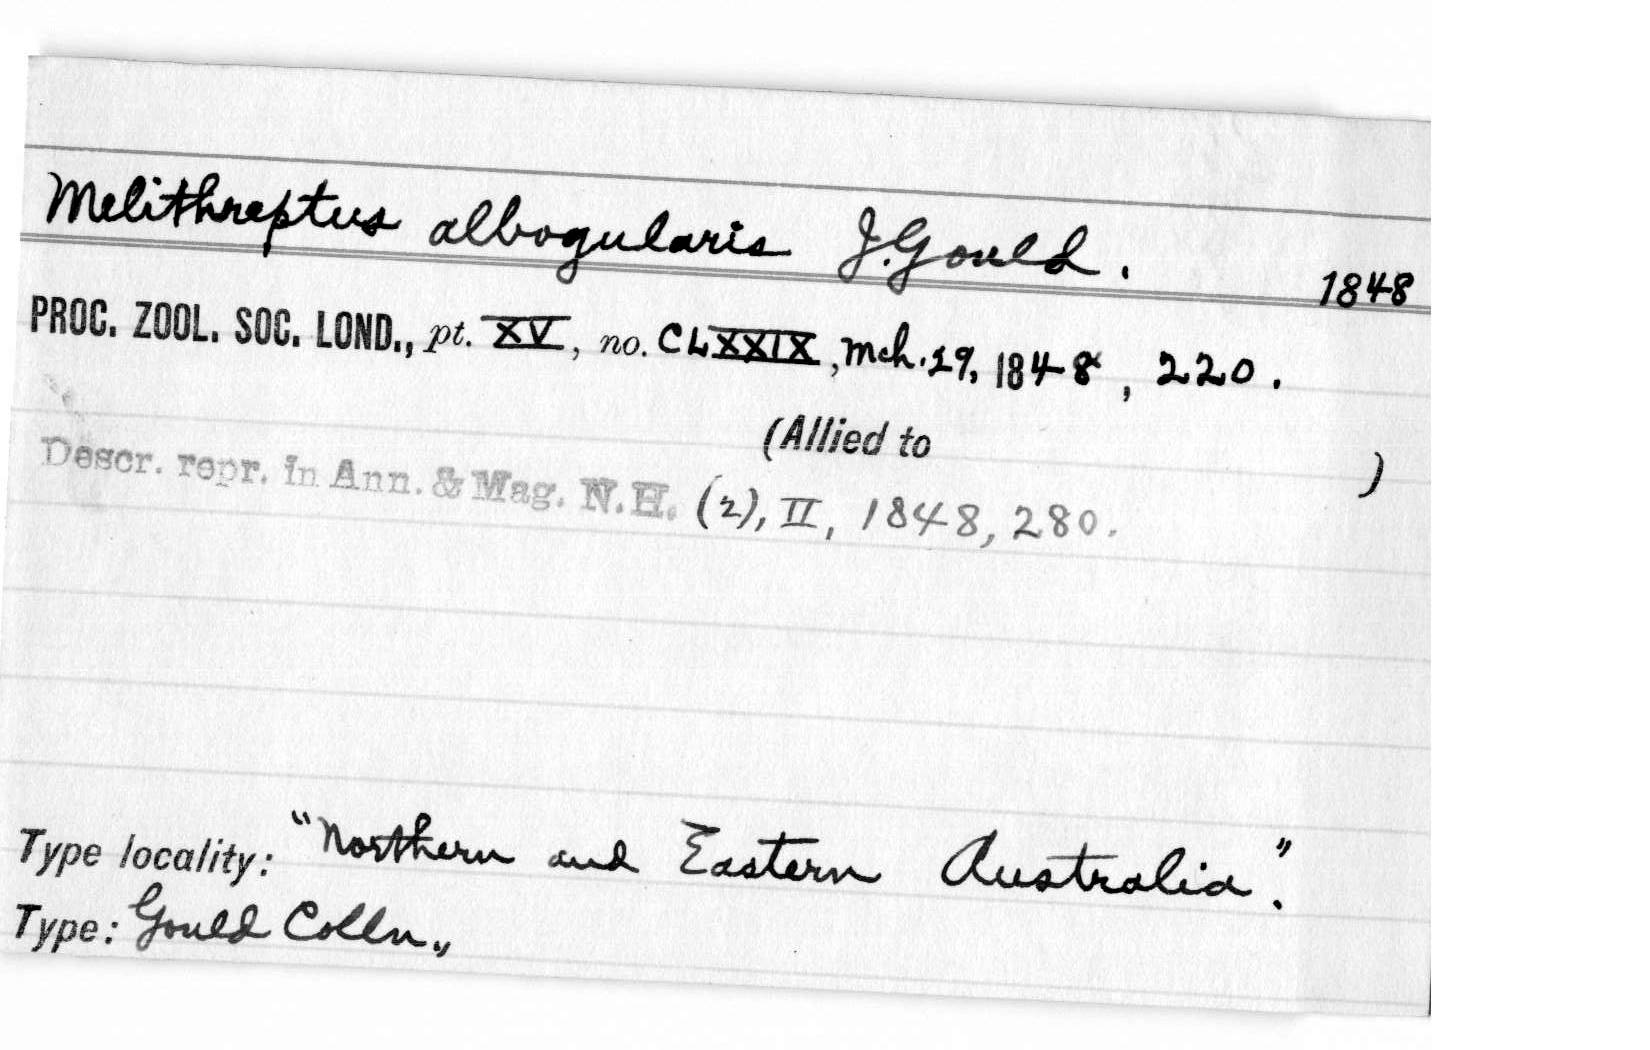 Melithreptus albogularis J. Gould.
1848
PROC. ZOOL. SOC. LOND., pt. XV, no. CLXXIX, Mch. 29, 1848, 220.
(Allied to )
Descr. repr. in Ann. & Mag. N.H. (2), II, 1848, 280.
Type locality: "Northern and Eastern Australia".
Type: Gould Colln.,